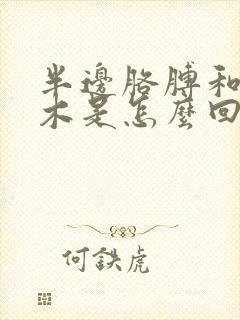 半邊胳膊和
木是怎麼回
何鉄虎